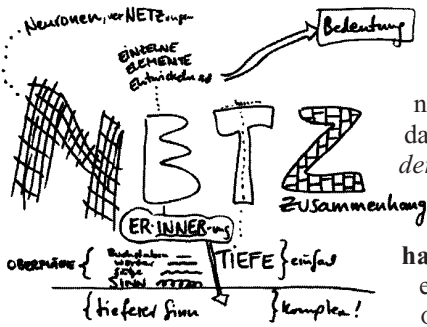 Neuronen, verNETZungen
Bedeutung
EINZELNE
ELEMENTE
Entwickeln
NETZ
Zusammenhang
ER-INNER-ung
OBERFLÄCHE { Buchstaben
Wörter
Sätze
SINN
TIEFE } einfach
{ tieferer Sinn } komplex!
n
da
der
ha
e